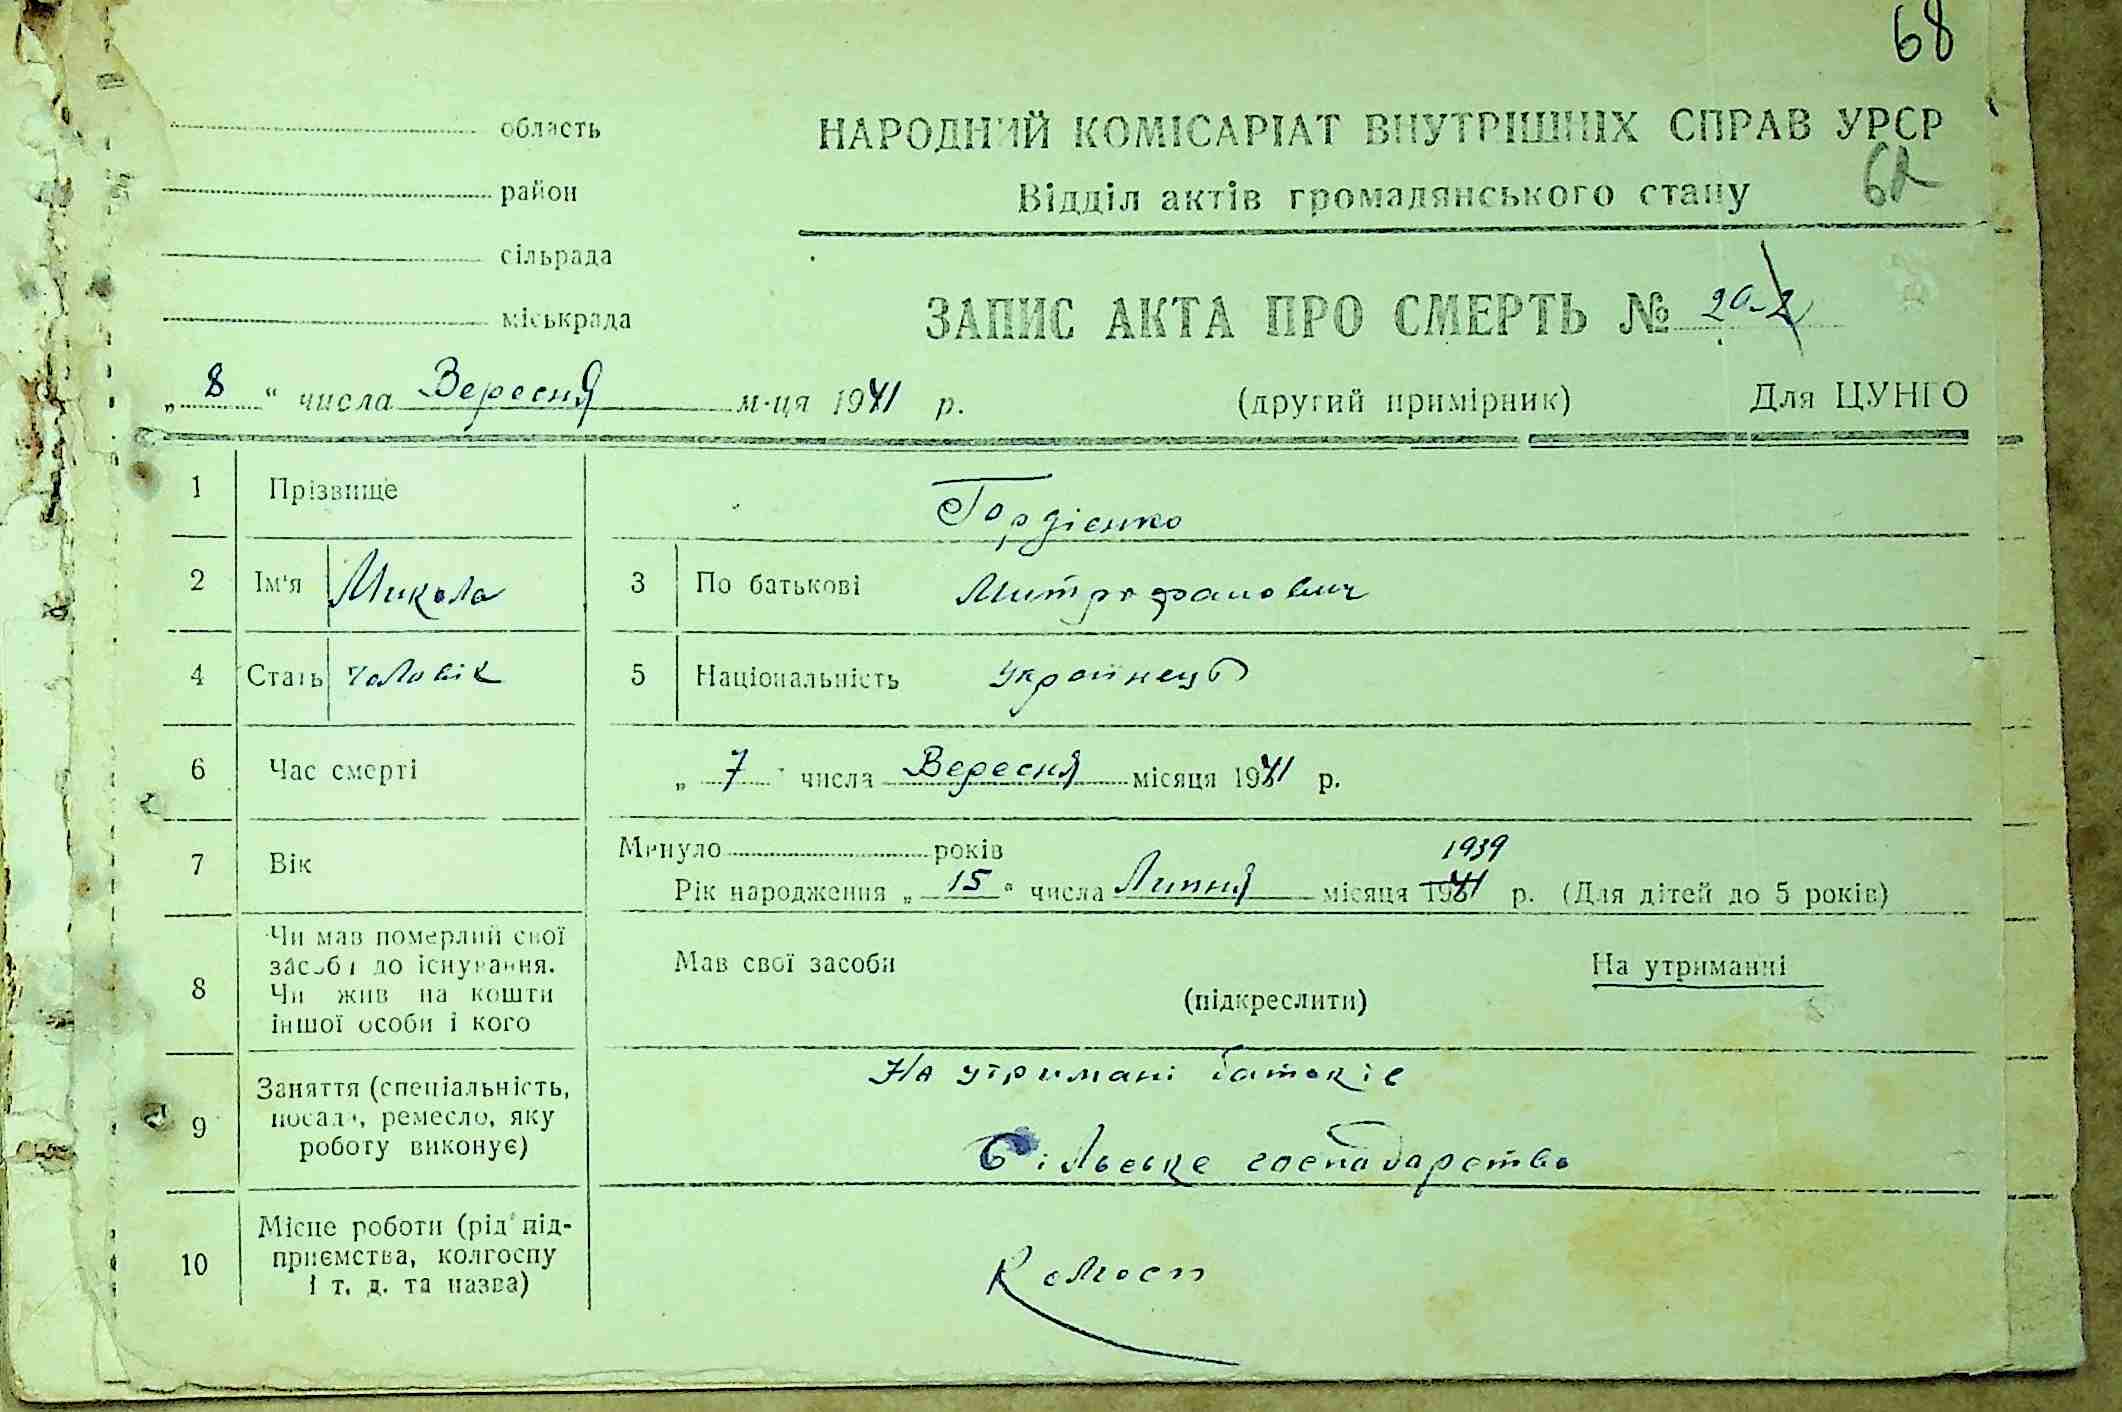 68
область
НАРОДНИЙ КОМІСАРІАТ ВНУТРІШНІХ СПРАВ УРСР
район
Відділ актів громадянського стану
сільрада
міськрада
ЗАПИС АКТА ПРО СМЕРТЬ №
„ 8 “ числа Вересня м-ця 1941 р. (другий примірник) Для ЦУНГО
1 Прізвище Гордієнко
2 Ім'я Микола 3 По батькові Митрофанович
4 Стать чоловік 5 Національність українець
6 Час смерті „ 7 “ числа Вересня місяця 1941 р.
7 Вік Минуло років 1939
Рік народження „ 15 “ числа Липня місяця 1941 р. (Для дітей до 5 років)
8 Чи мав померлий свої засоби до існування. Чи жив на кошти іншої особи і кого
Мав свої засоби На утриманні
(підкреслити)
9 Заняття (спеціальність, посада, ремесло, яку роботу виконує)
На утримані батьків
Сільське господарство
10 Місце роботи (рід підприємства, колгоспу і т. д. та назва)
Колгосп